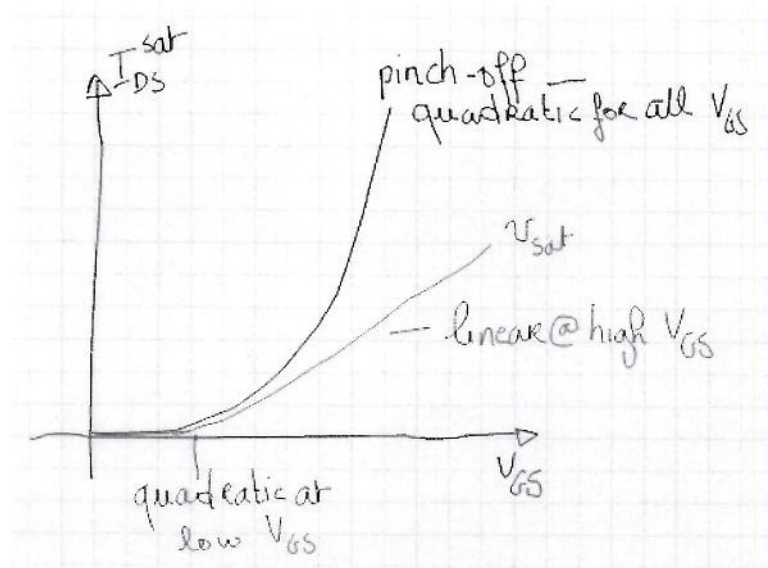 I_DS^sat
pinch-off —
quadratic for all V_GS
v_sat
— linear @ high V_GS
V_GS
quadratic at
low V_GS